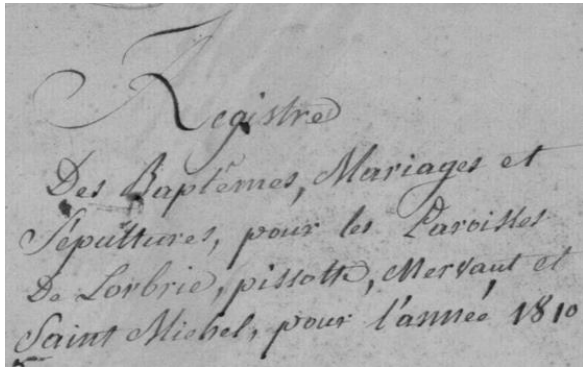 Registre
Des Baptêmes, Mariages et
Sépultures, pour les Paroisses
De Lorbrie, pissotte, Mervaut et
Saint Michel, pour l'année 1810